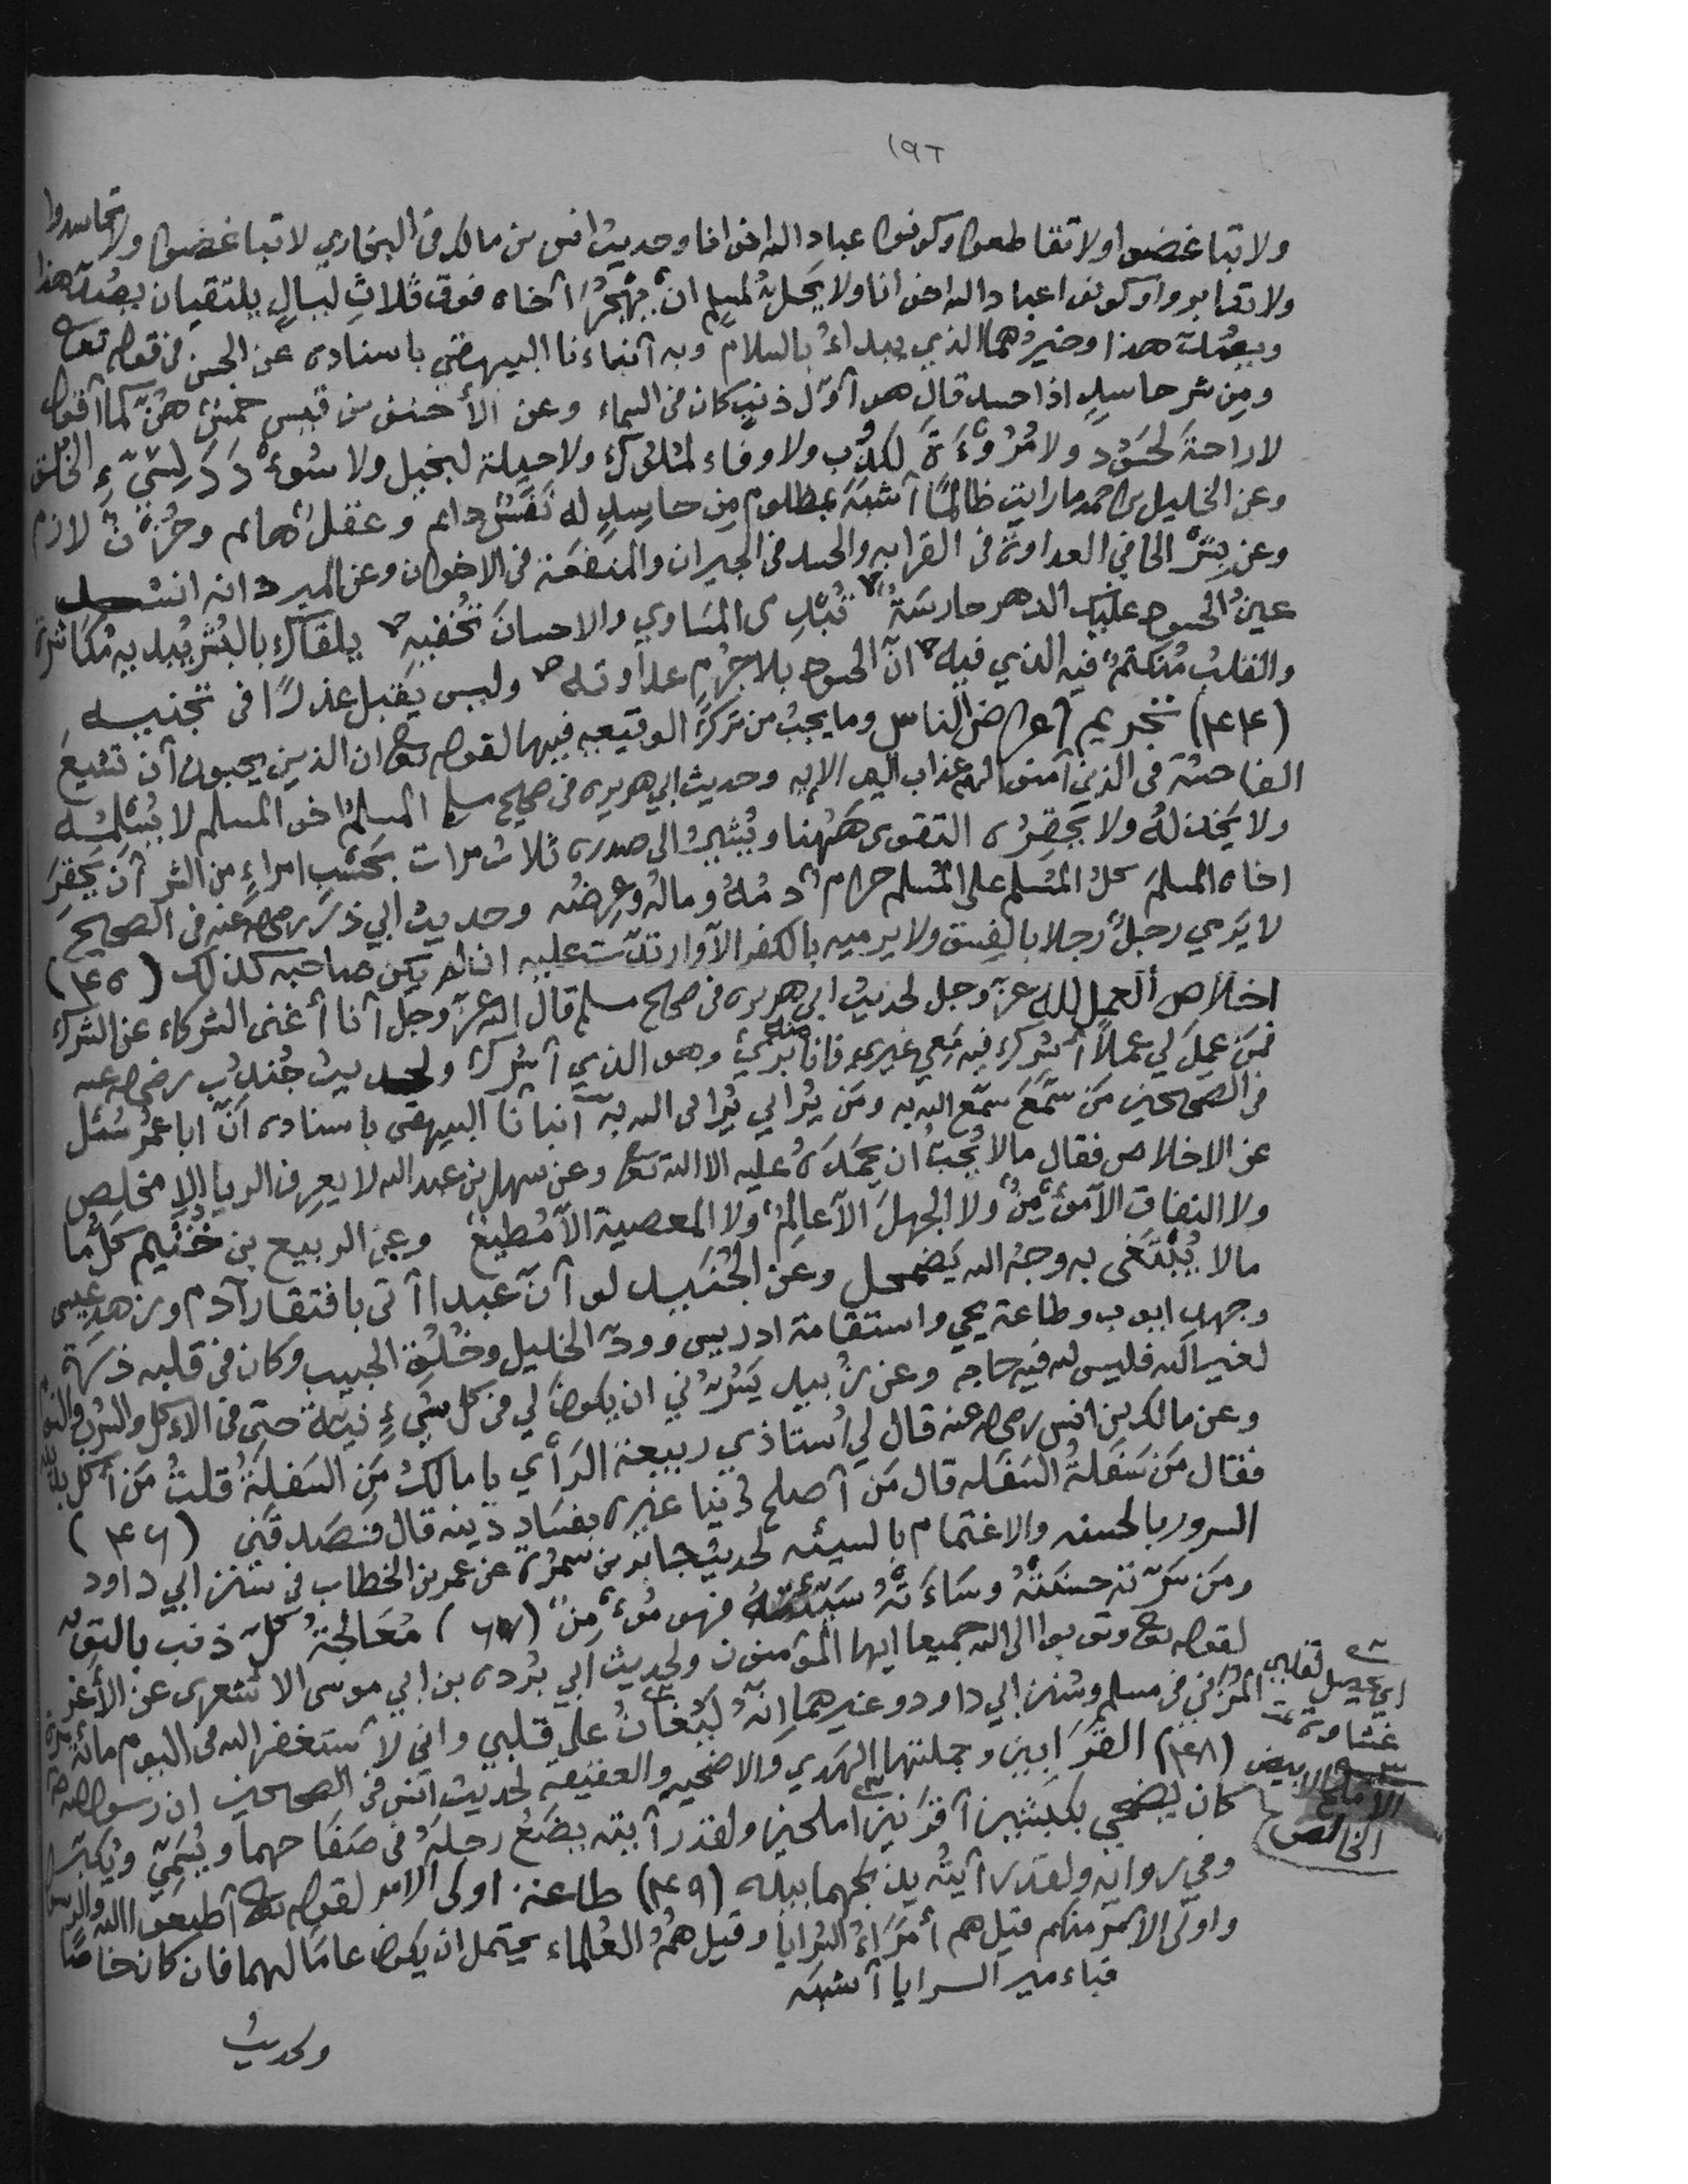 ١٩٢
ولا تباغضوا ولا تقاطعوا وكونوا عباد الله اخوانا وحديث انس بن مالك فى البخاري لا تباغضوا ولا تحاسدوا
ولا تدابروا وكونوا عباد الله اخوانا ولا يحل لمسلم ان يهجر أخاه فوق ثلاث ليال يلتقيان يصد هذا
ويصد هذا وخيرهما الذي يبداء بالسلام وبه أنباءنا البيهقي باسناده عن الحسن فى قوله تعالى
ومن شر حاسد اذا حسد قال هو أول ذنب كان فى السماء وعن الأحنف بن قيس خمس هن كما أقول
لا راحة لحسود ولا مروءة لكذوب ولا وفاء لملوك ولا حيلة لبخيل ولا سوءدد لسيء الخلق
وعن الخليل بن احمد ما رايت ظالما أشبه بمظلوم من حاسد له نفس دايم وعقل هايم وحزن لازم
وعن بشر الحافي العداوة فى القرابه والحسد فى الجيران والمنفعة فى الاخوان وعن المبرد انه انشد
عين الحسود عليك الدهر حارسة تبدى المساوي والاحسان تخفيه يلقاك بالبشر يبديه مكاشرة
والقلب منكتم فيه الذي فيه ان الحسود بلا جرم عداوته وليس يقبل عذرا فى تجنيه
(٤٤) تحريم أعراض الناس وما يجب من ترك الوقيعه فيها لقوله تعالى ان الذين يحبون أن تشيع
الفاحشة فى الذين آمنوا لهم عذاب اليم الايه وحديث ابي هريره فى صحيح مسلم المسلم اخو المسلم لا يسلمه
ولا يخذله ولا يحقره التقوى ههنا ويشير الى صدره ثلاث مرات بحسب امراء من الشر أن يحقر
اخاه المسلم كل المسلم على المسلم حرام دمه وماله وعرضه وحديث ابي ذر رضي الله عنه فى الصحيح
لا يرمي رجل رجلا بالفسق ولا يرميه بالكفر الا ارتدت عليه ان لم يكن صاحبه كذلك (٤٥)
اخلاص العمل لله عز وجل لحديث ابي هريره فى صحيح مسلم قال الله عز وجل أنا أغنى الشركاء عن الشرك
فمن عمل لي عملا أشرك فيه معي غيري فانا منه بريء وهو الذي أشرك ولحديث جندب رضي الله عنه
فى الصحيحين من سمع سمع الله به ومن يرايي يرايي الله به أنبانا البيهقى باسناده أن ابا عمر سئل
عن الاخلاص فقال مالا يحب ان يحمده عليه الا الله تعالى وعن سهل بن عبد الله لا يعرف الريا الا مخلص
ولا النفاق الا مؤمن ولا الجهل الا عالم ولا المعصية الا مطيع وعن الربيع بن خثيم كل ما
مالا يبتغى به وجه الله يضمحل وعن الجنيد لو أن عبدا أتى بافتقار آدم وزهد عيسى
وجهد ايوب وطاعة يحي واستقامة ادريس وود الخليل وخلق الحبيب وكان فى قلبه ذرة
لغير الله فليس لله فيه حاجه وعن زبيد يسرني ان يكون لي فى كل شيء نية حتى فى الاءكل والشرب والنوم
وعن مالك بن انس رضي الله عنه قال لي أستاذي ربيعة الرأي يا مالك من السفلة قلت من أكل بدينه
فقال من سفلة السفله قال من أصلح دنيا غيره بفساد دينه قال فصدقني (٤٦)
السرور بالحسنه والاغتمام بالسيئه لحديث جابر بن سمرة عن عمر بن الخطاب فى سنن ابي داود
ومن سرته حسنته وساءته سيئته فهو مؤمن (٤٧) معالجة كل ذنب بالتوبة
لقوله تعالى وتوبوا الى الله جميعا ايها المؤمنون ولحديث ابي بردة بن ابي موسى الاشعري عن الأغر
المزني فى مسلم وسنن ابي داود وغيرهما انه ليغان على قلبي واني لأستغفر الله فى اليوم مائة مرة
(٤٨) القرابين وجملتها الهدي والاضحيه والعقيقة لحديث انس فى الصحيحين ان رسول الله
كان يضحي بكبشين أقرنين املحين ولقد رأيته يضع رجله فى صفاحهما ويسمي ويكبر
وفي روايه ولقد رأيته يذبحهما بيده (٤٩) طاعة اولى الامر لقوله تعالى أطيعوا الله والرسول
واولى الامر منكم قيل هم أمراء السرايا وقيل هم العلماء يحتمل ان يكون عاما لهما فان كان خاصا
فباءمير السرايا أشبه
ولحديث
اي يحصل لقلبي
غشاوة
الاملح الابيض
الخالص